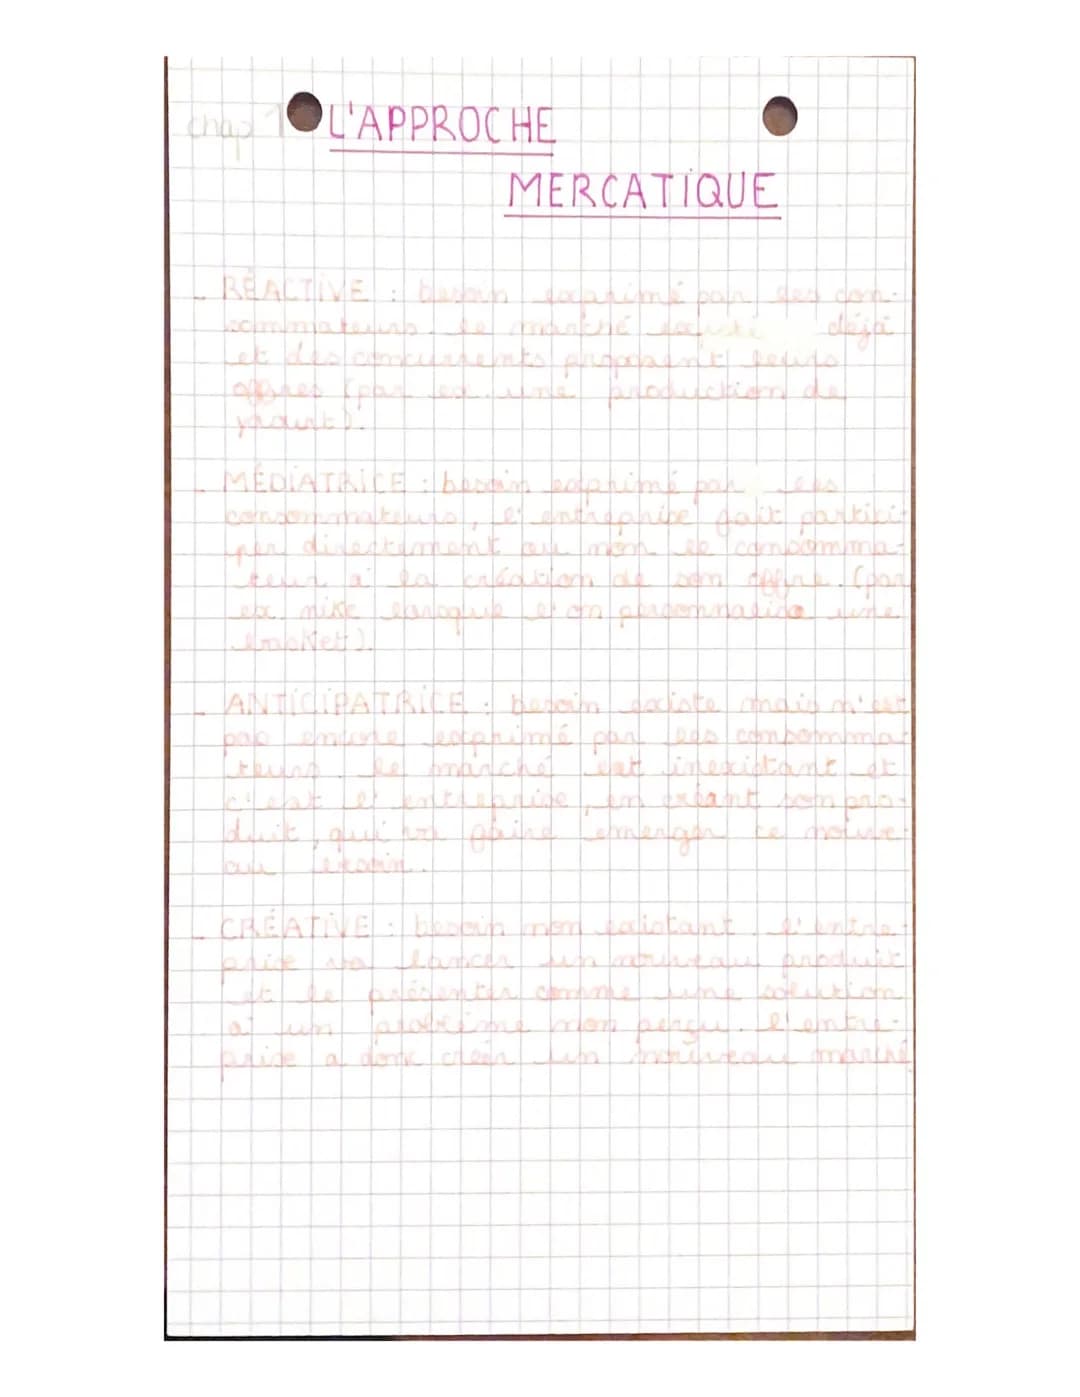 chap 1 L'APPROCHE
MERCATIQUE
- RÉACTIVE : besoin exprimé par les con-
sommateurs. le marché existe déjà
et des concurrents proposent leurs
offres (par ex. une production de
yaourt).
- MÉDIATRICE : besoin exprimé par les
consommateurs, l'entreprise fait partici-
per directement ou non le consomma-
teur à la création de son offre. (par
ex. nike lorsque l'on personnalise une
basket).
- ANTICIPATRICE : besoin existe mais n'est
pas encore exprimé par les consomma-
teurs. le marché est inexistant et
c'est l'entreprise, en créant son pro-
duit, qui va faire emerger ce nouve-
au besoin.
- CRÉATIVE : besoin non existant. l'entre-
prise va lancer un nouveau produit
et le présenter comme une solution
à un problème non perçu. l'entre-
prise a donc créer un nouveau marché